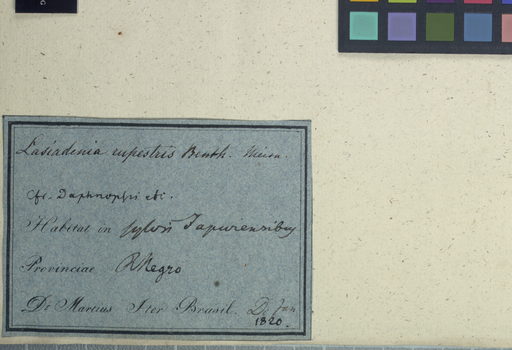 Lasiadenia rupestris Benth. Meisn.
cfr. Daphnopsi
Habitat in sylvis Japurensibus
Provinciae R Negro
Dr Martius Iter Brasil. D. Jan
1820.